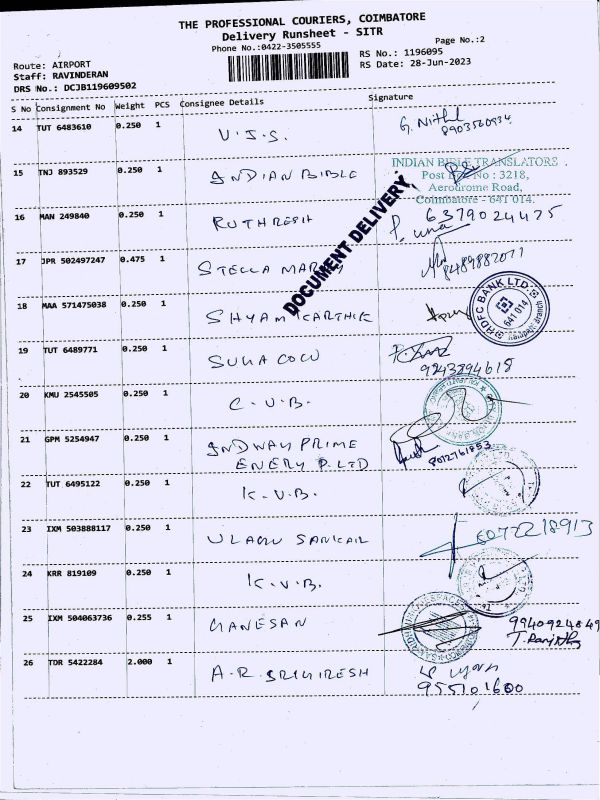 THE PROFESSIONAL COURIERS, COIMBATORE
Delivery Runsheet - SITR
Phone No.:0422-3505555
Page No.:2
Route: AIRPORT
RS No.: 1196095
Staff: RAVINDERAN
RS Date: 28-Jun-2023
DRS No.: DCJB119609502
S No Consignment No Weight PCS Consignee Details Signature
14 TUT 6483610 0.250 1 V.J.S. G. Nithil
8903560934
15 TNJ 893529 0.250 1 INDIAN BIBLE
INDIAN BIBLE TRANSLATORS
Post Box No : 3218,
Aerodrome Road,
Coimbatore - 641 014.
DOCUMENT DELIVERY
16 MAN 249840 0.250 1 RUTHRESH 6379024475
17 JPR 502497247 0.475 1 STELLA MARRY 8489887077
18 MAA 571475038 0.250 1 SHYAM KARTHIK
HDFC BANK LTD. 641 014
19 TUT 6489771 0.250 1 SUGA COCO
9243294618
20 KMU 2545505 0.250 1 C.U.B.
21 GPM 5254947 0.250 1 INDWAY PRIME
ENERY P.LTD 8012761853
22 TUT 6495122 0.250 1 K.V.B.
23 IXM 503888117 0.250 1 6072218913
24 KRR 819109 0.250 1 K.V.B.
25 IXM 504063736 0.255 1 GANESAN 9940924849
26 TDR 5422284 2.000 1 A.R.
955101600